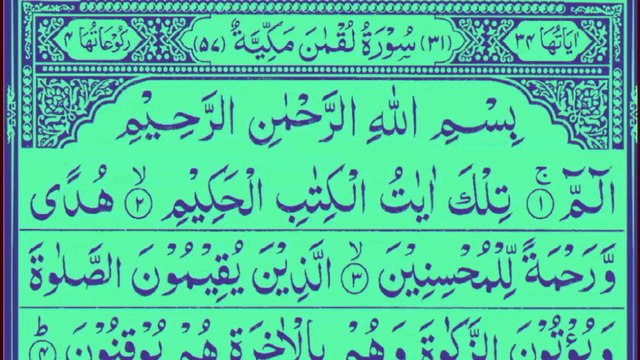 اٰيَاتُهَا ٣٤ (٣١) سُوْرَةُ لُقْمٰنَ مَكِّيَّةٌ (٥٧) رُكُوْعَاتُهَا ٤
بِسْمِ اللّٰهِ الرَّحْمٰنِ الرَّحِيْمِ
الٓمّٓ ۚ‏ ﴿١﴾ تِلْكَ اٰيٰتُ الْكِتٰبِ الْحَكِيْمِ ۙ‏ ﴿٢﴾ هُدًى
وَّرَحْمَةً لِّلْمُحْسِنِيْنَ ۙ‏ ﴿٣﴾ الَّذِيْنَ يُقِيْمُوْنَ الصَّلٰوةَ
وَيُؤْتُوْنَ الزَّكٰوةَ وَهُمْ بِالْاٰخِرَةِ هُمْ يُوْقِنُوْنَ ؕ‏ ﴿٤﴾